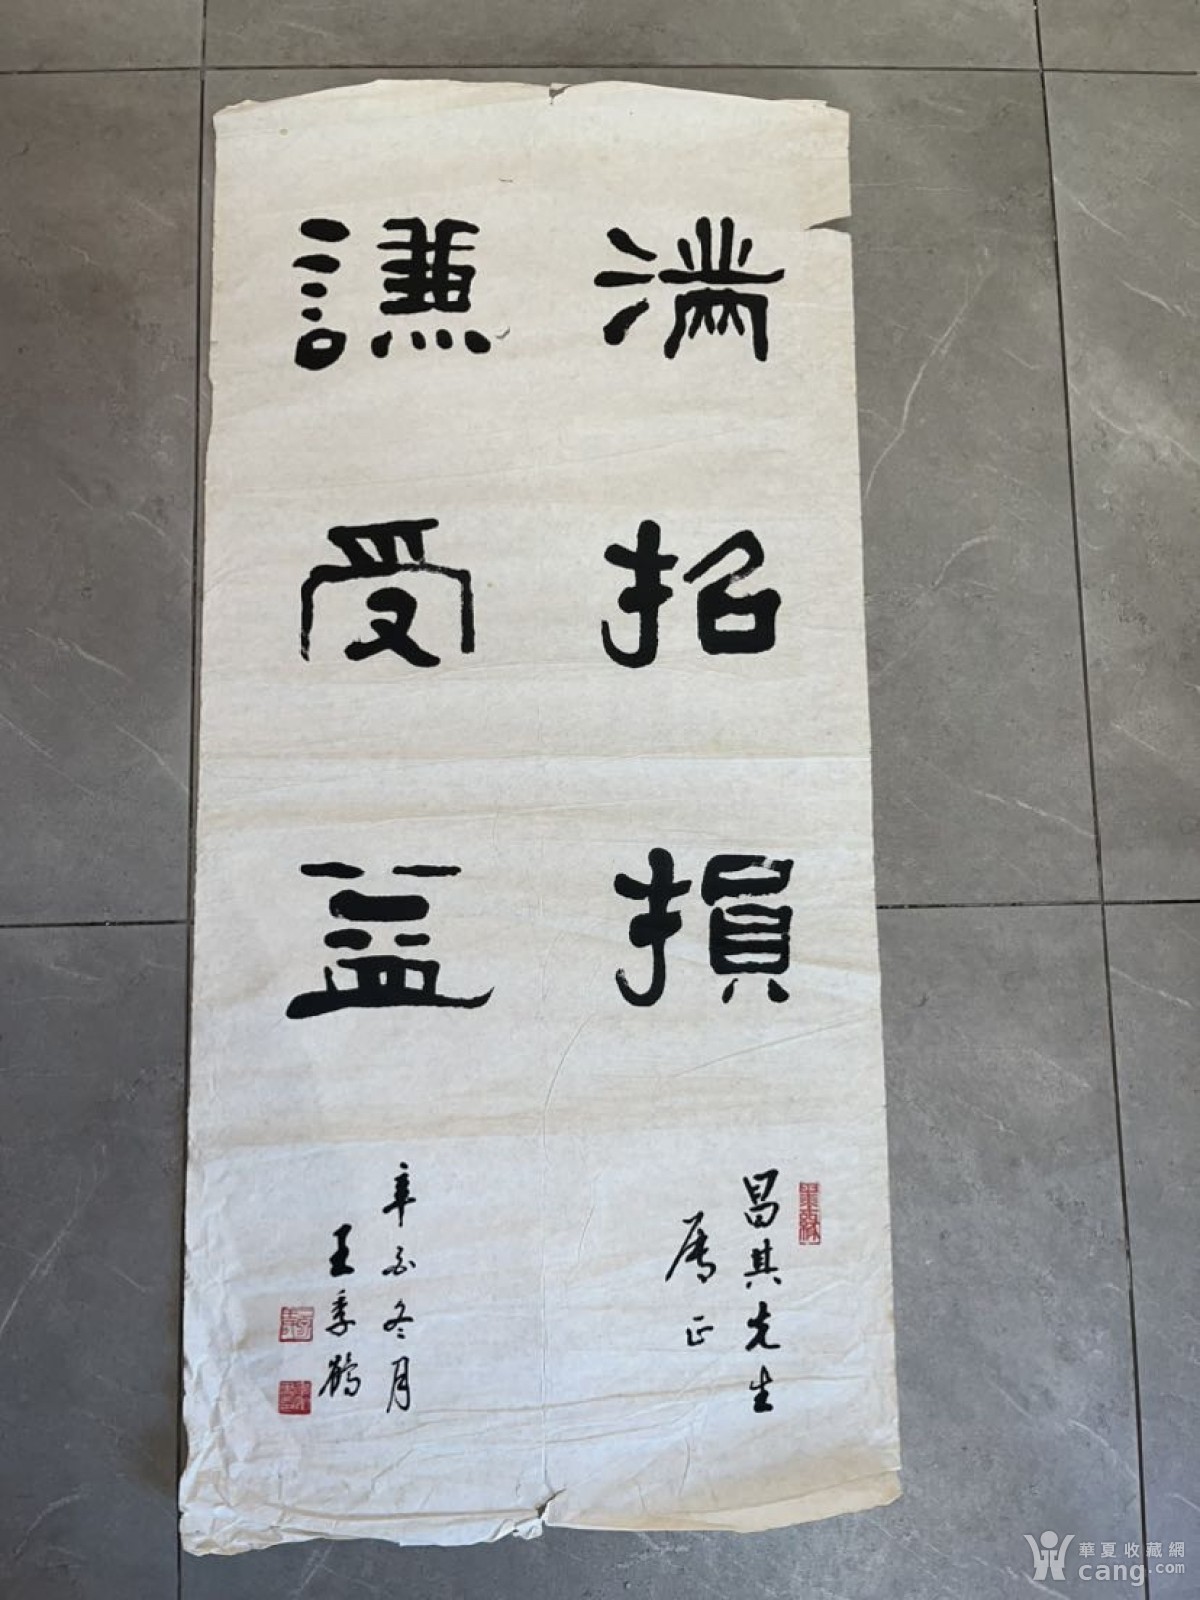 满招損
謙受益
昌其先生
属正
辛酉冬月
王季鶴
華夏收藏網
cang.com